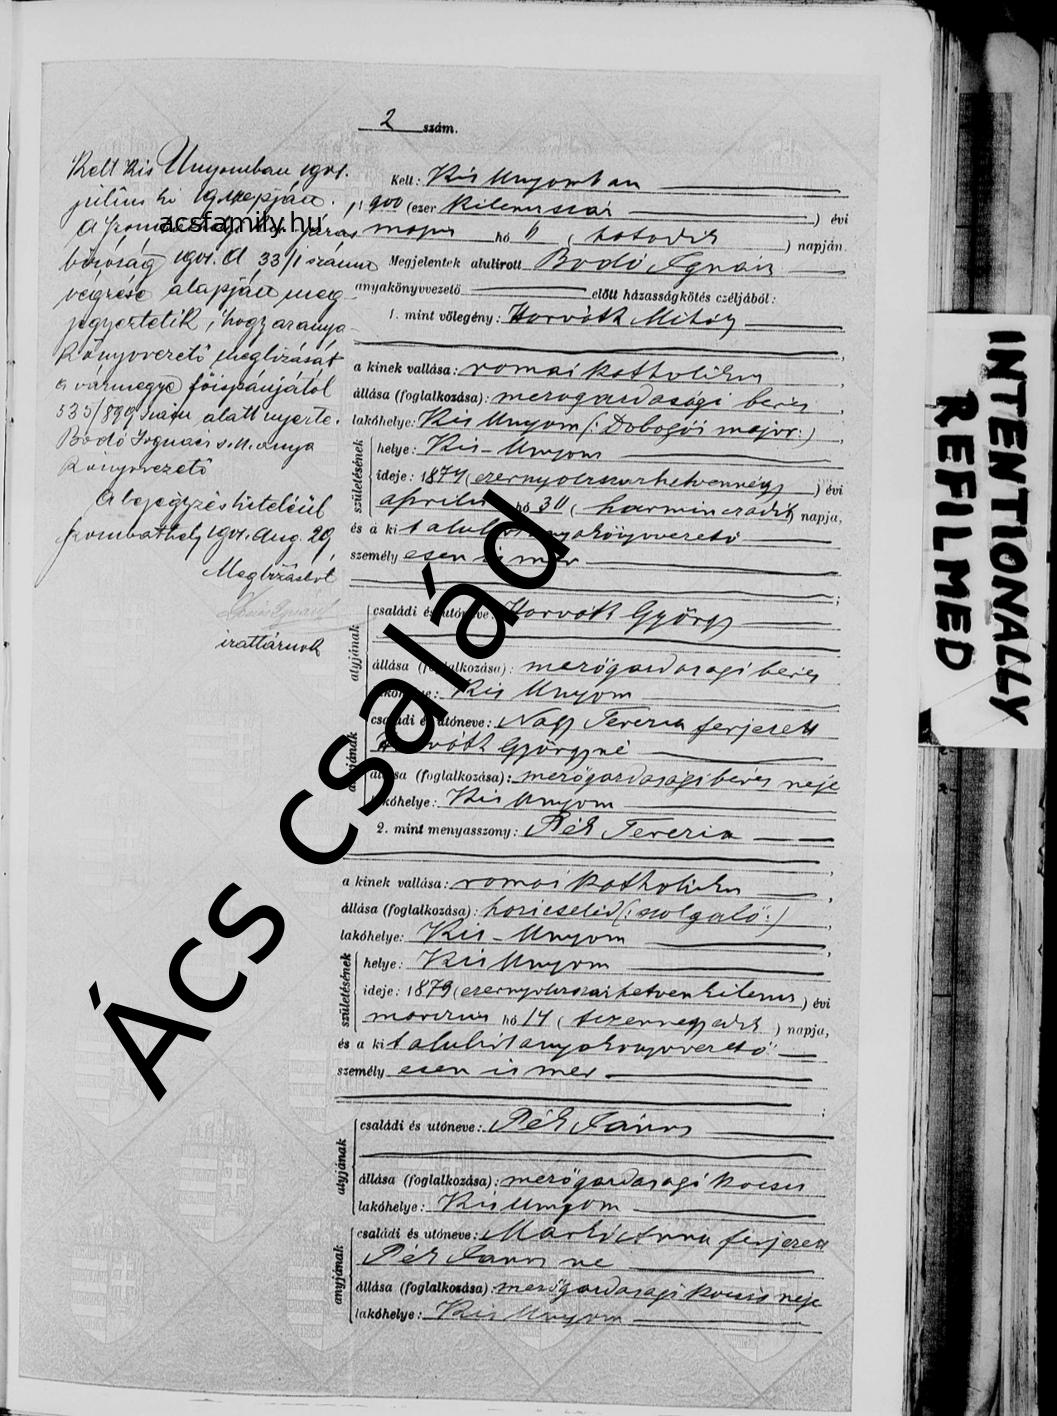 2 szám.
Kelt Kis Unyomban 1901.
julius hó 19 napján.
A szom járás
biróság 1901. A 33/1 számu
végzése alapján meg-
jegyeztetik, hogy az anya-
könyvvezető megbizását
a vármegye főispánjától
535/899 szám alatt nyerte.
Bodó Ignacz s. k. anya
könyvvezető
A bejegyzés hiteléül
Szombathely 1901. Aug. 29,
Megbizásból
irattárnok
acsfamily.hu
Kelt: Kis Unyomban
1900 (ezer kilenczszáz ) évi
május hó 6 ( hatodik ) napján.
Megjelentek alulirott Bodó Ignácz
anyakönyvvezető előtt házasságkötés czéljából:
1. mint vőlegény: Horváth Mihály
a kinek vallása: romai katholikus
állása (foglalkozása): mezogazdasági béres
lakóhelye: Kis Unyom (: Dobogói major :)
születésének
helye: Kis-Unyom
ideje: 1874 (ezernyolczszázhetvennégy ) évi
április hó 30 ( harminczadik ) napja,
és a kit alulirt anyakönyvvezető
személyesen ismer
atyjának
családi és utóneve: Horváth György
állása (foglalkozása): mezőgazdasagi béres
lakóhelye: Kis Unyom
anyjának
családi és utóneve: Nagy Terezia férjezett
Horváth Györgyné
állása (foglalkozása): mezőgazdasagi béres neje
lakóhelye: Kis Unyom
2. mint menyasszony: Pék Terezia
a kinek vallása: romai katholikus
állása (foglalkozása): házicseléd (: szolgáló :)
lakóhelye: Kis-Unyom
születésének
helye: Kis Unyom
ideje: 1879 (ezernyolczszázhetvenkilencz ) évi
marczius hó 14 ( tizennegyedik ) napja,
és a kit alulirt anyakönyvvezető
személyesen ismer
atyjának
családi és utóneve: Pék János
állása (foglalkozása): mezőgazdasagi kocsis
lakóhelye: Kis Unyom
anyjának
családi és utóneve: Anna férjezett
Pék János né
állása (foglalkozása): mezőgazdasagi kocsis neje
lakóhelye: Kis Unyom
Ács család
INTENTIONALLY
REFILMED